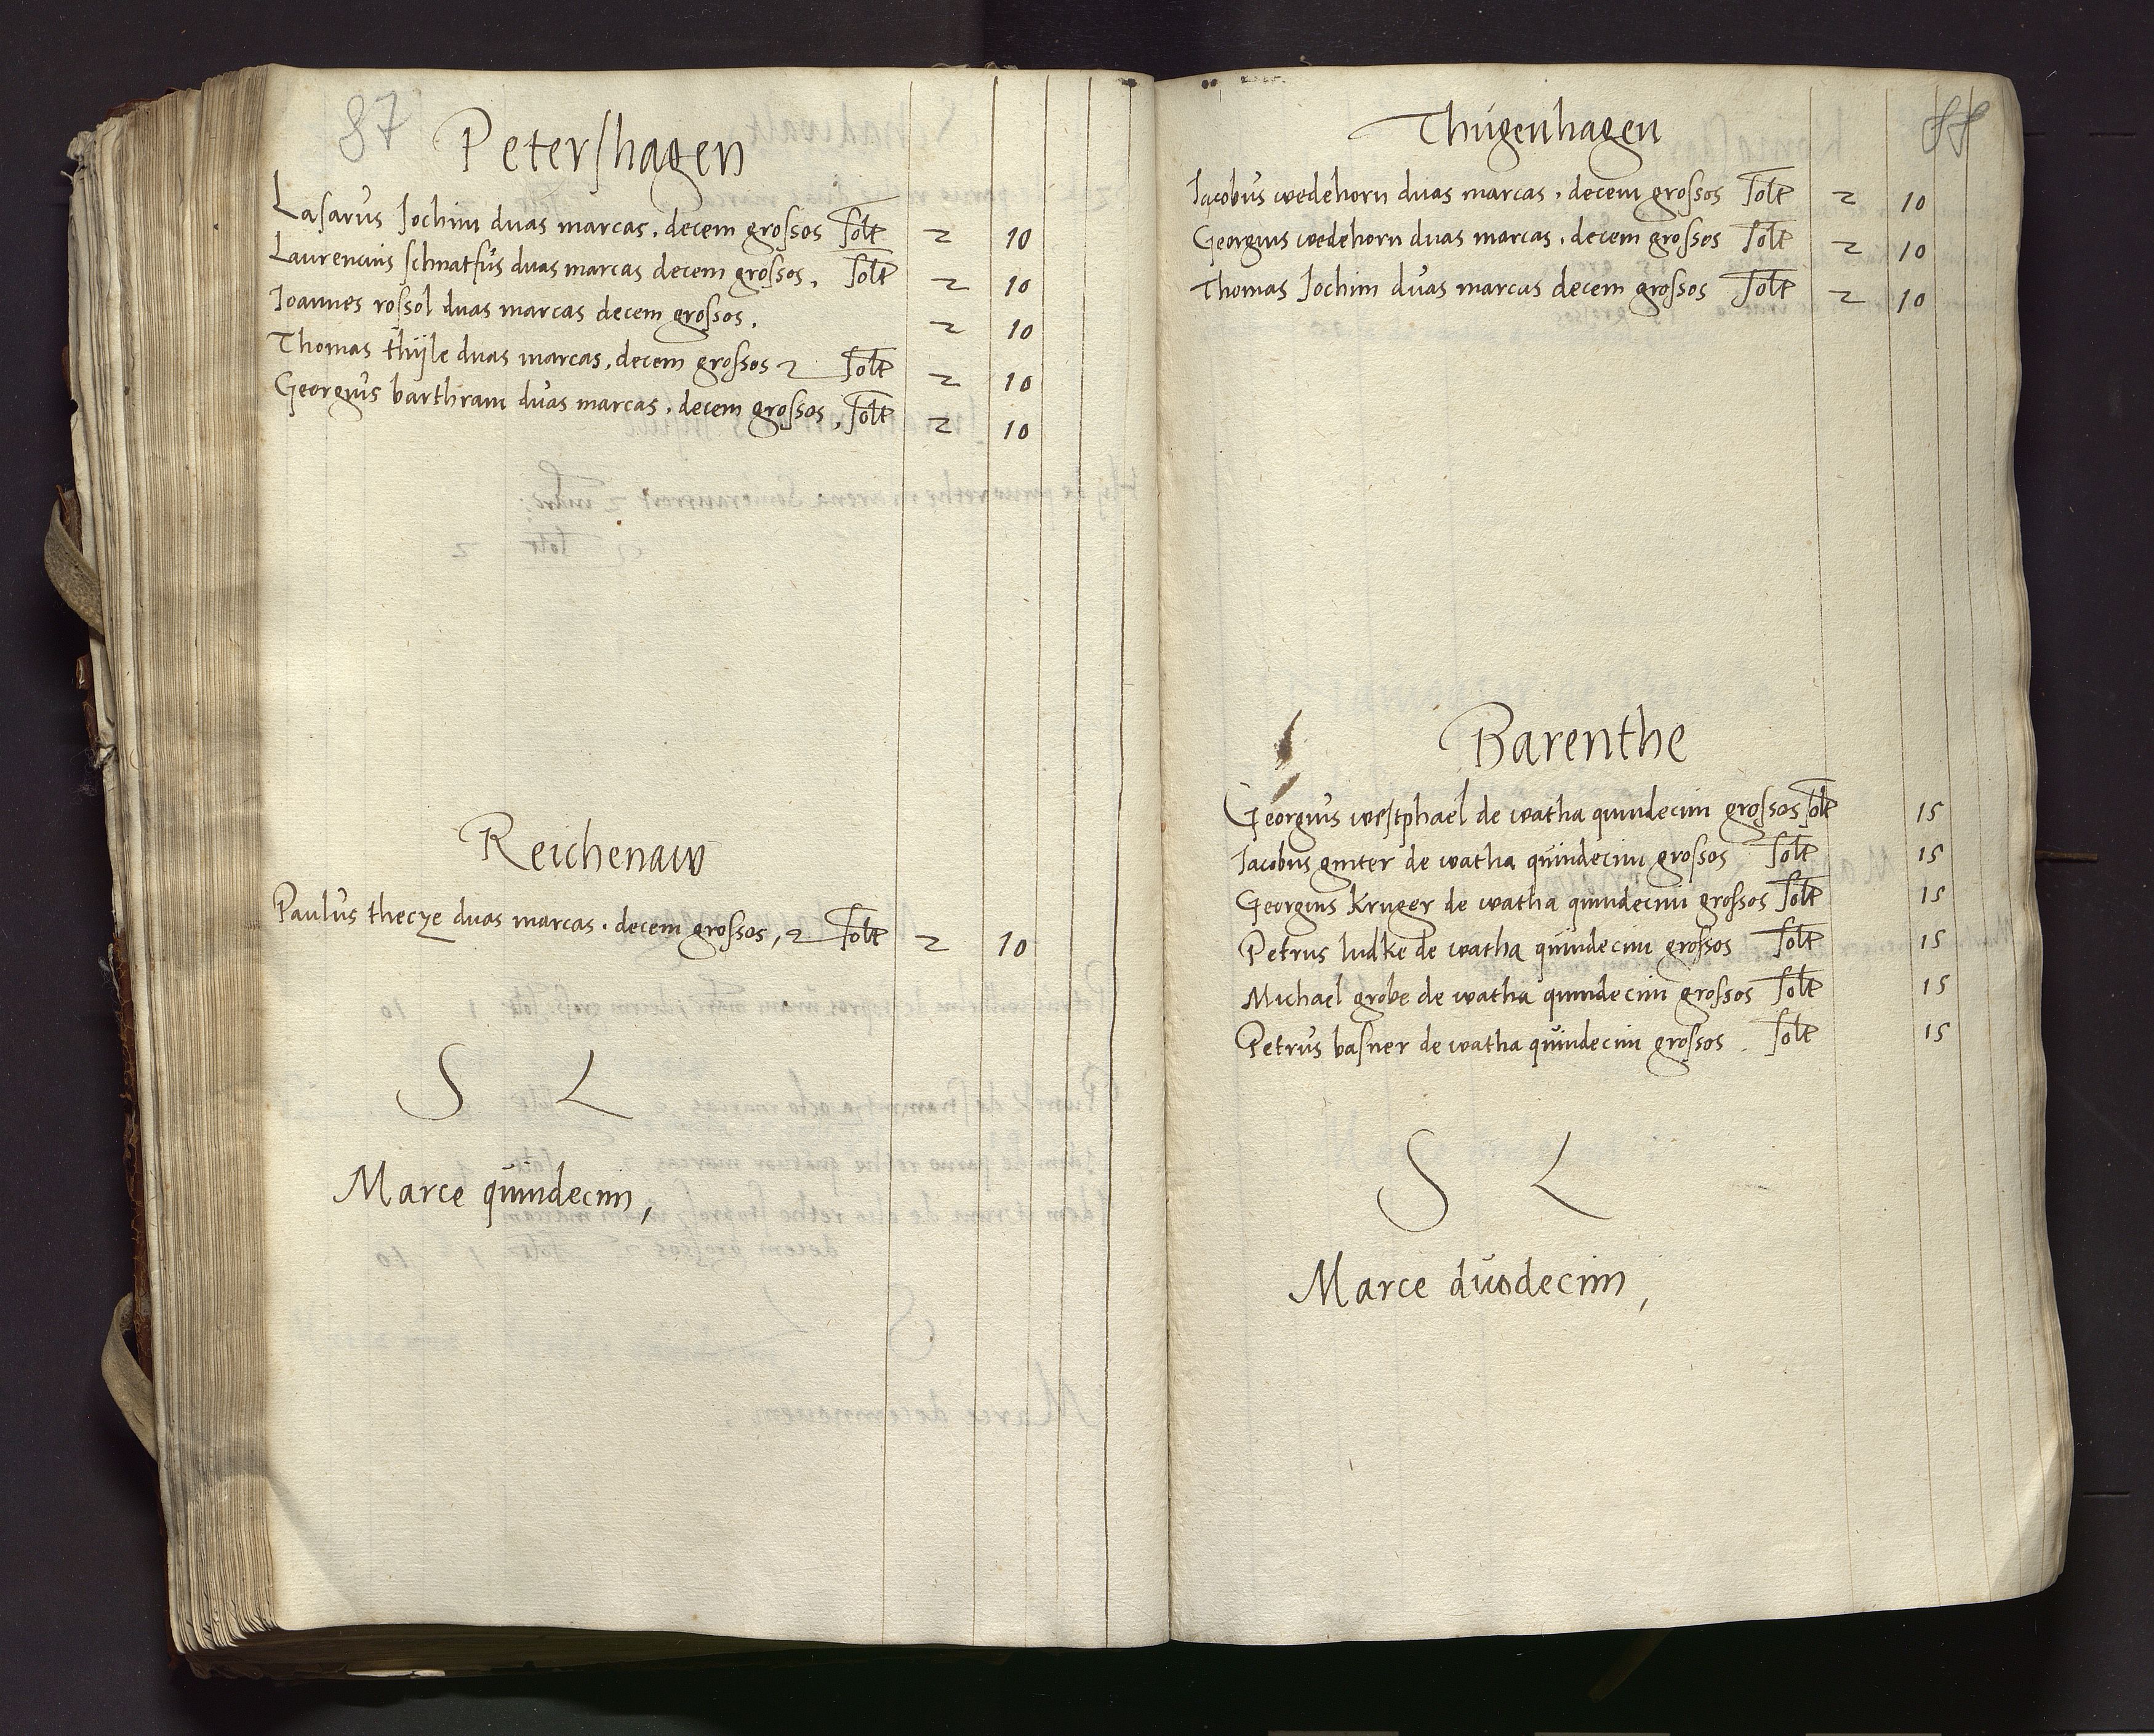 87
Petershagen
Lasarus Jochim duas marcas. decem grossos Solt 2 10
Laurencius schnatfus duas marcas decem grossos. Solt 2 10
Joannes rossol duas marcas decem grossos. 2 10
Thomas thÿle duas marcas, decem grossos 2 Solt 2 10
Georgius barthram duas marcas. decem grossos, Solt 2 10
Reichenaw
Paulus thecze duas marcas. decem grossos, 2 Solt 2 10
S L
Marce quindecim,
88
Thugenhagen
Jacobus wedehorn duas marcas. decem grossos Solt 2 10
Georgius wedehorn duas marcas. decem grossos Solt 2 10
Thomas Jochim duas marcas decem grossos Solt 2 10
Barenthe
Georgius westphael de watha quindecim grossos Solt 15
Jacobus ginter de watha quindecim grossos Solt 15
Georgius Kruger de watha quindecim grossos Solt 15
Petrus ludke de watha quindecim grossos Solt 15
Michael grobe de watha quindecim grossos Solt 15
Petrus basner de watha quindecim grossos. Solt 15
S L
Marce duodecim,